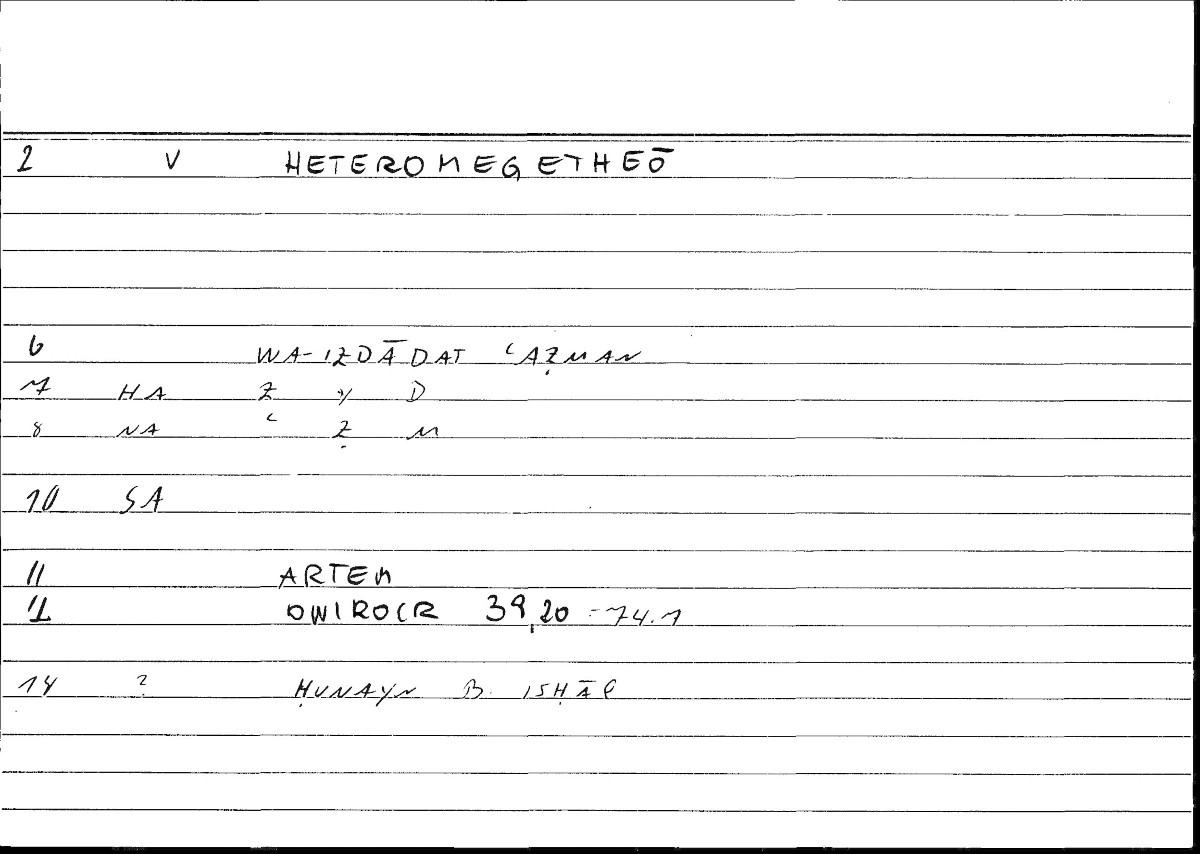 2 V HETEROMEGETHEŌ
6 WA-IZDĀDAT ʿAẒMAN
7 HA Z Y D
8 NA ʿ Ẓ M
10 SA
11 ARTEM
12 39,20 = 74.1
14 ? ḤUNAYN B. ISḤĀQ